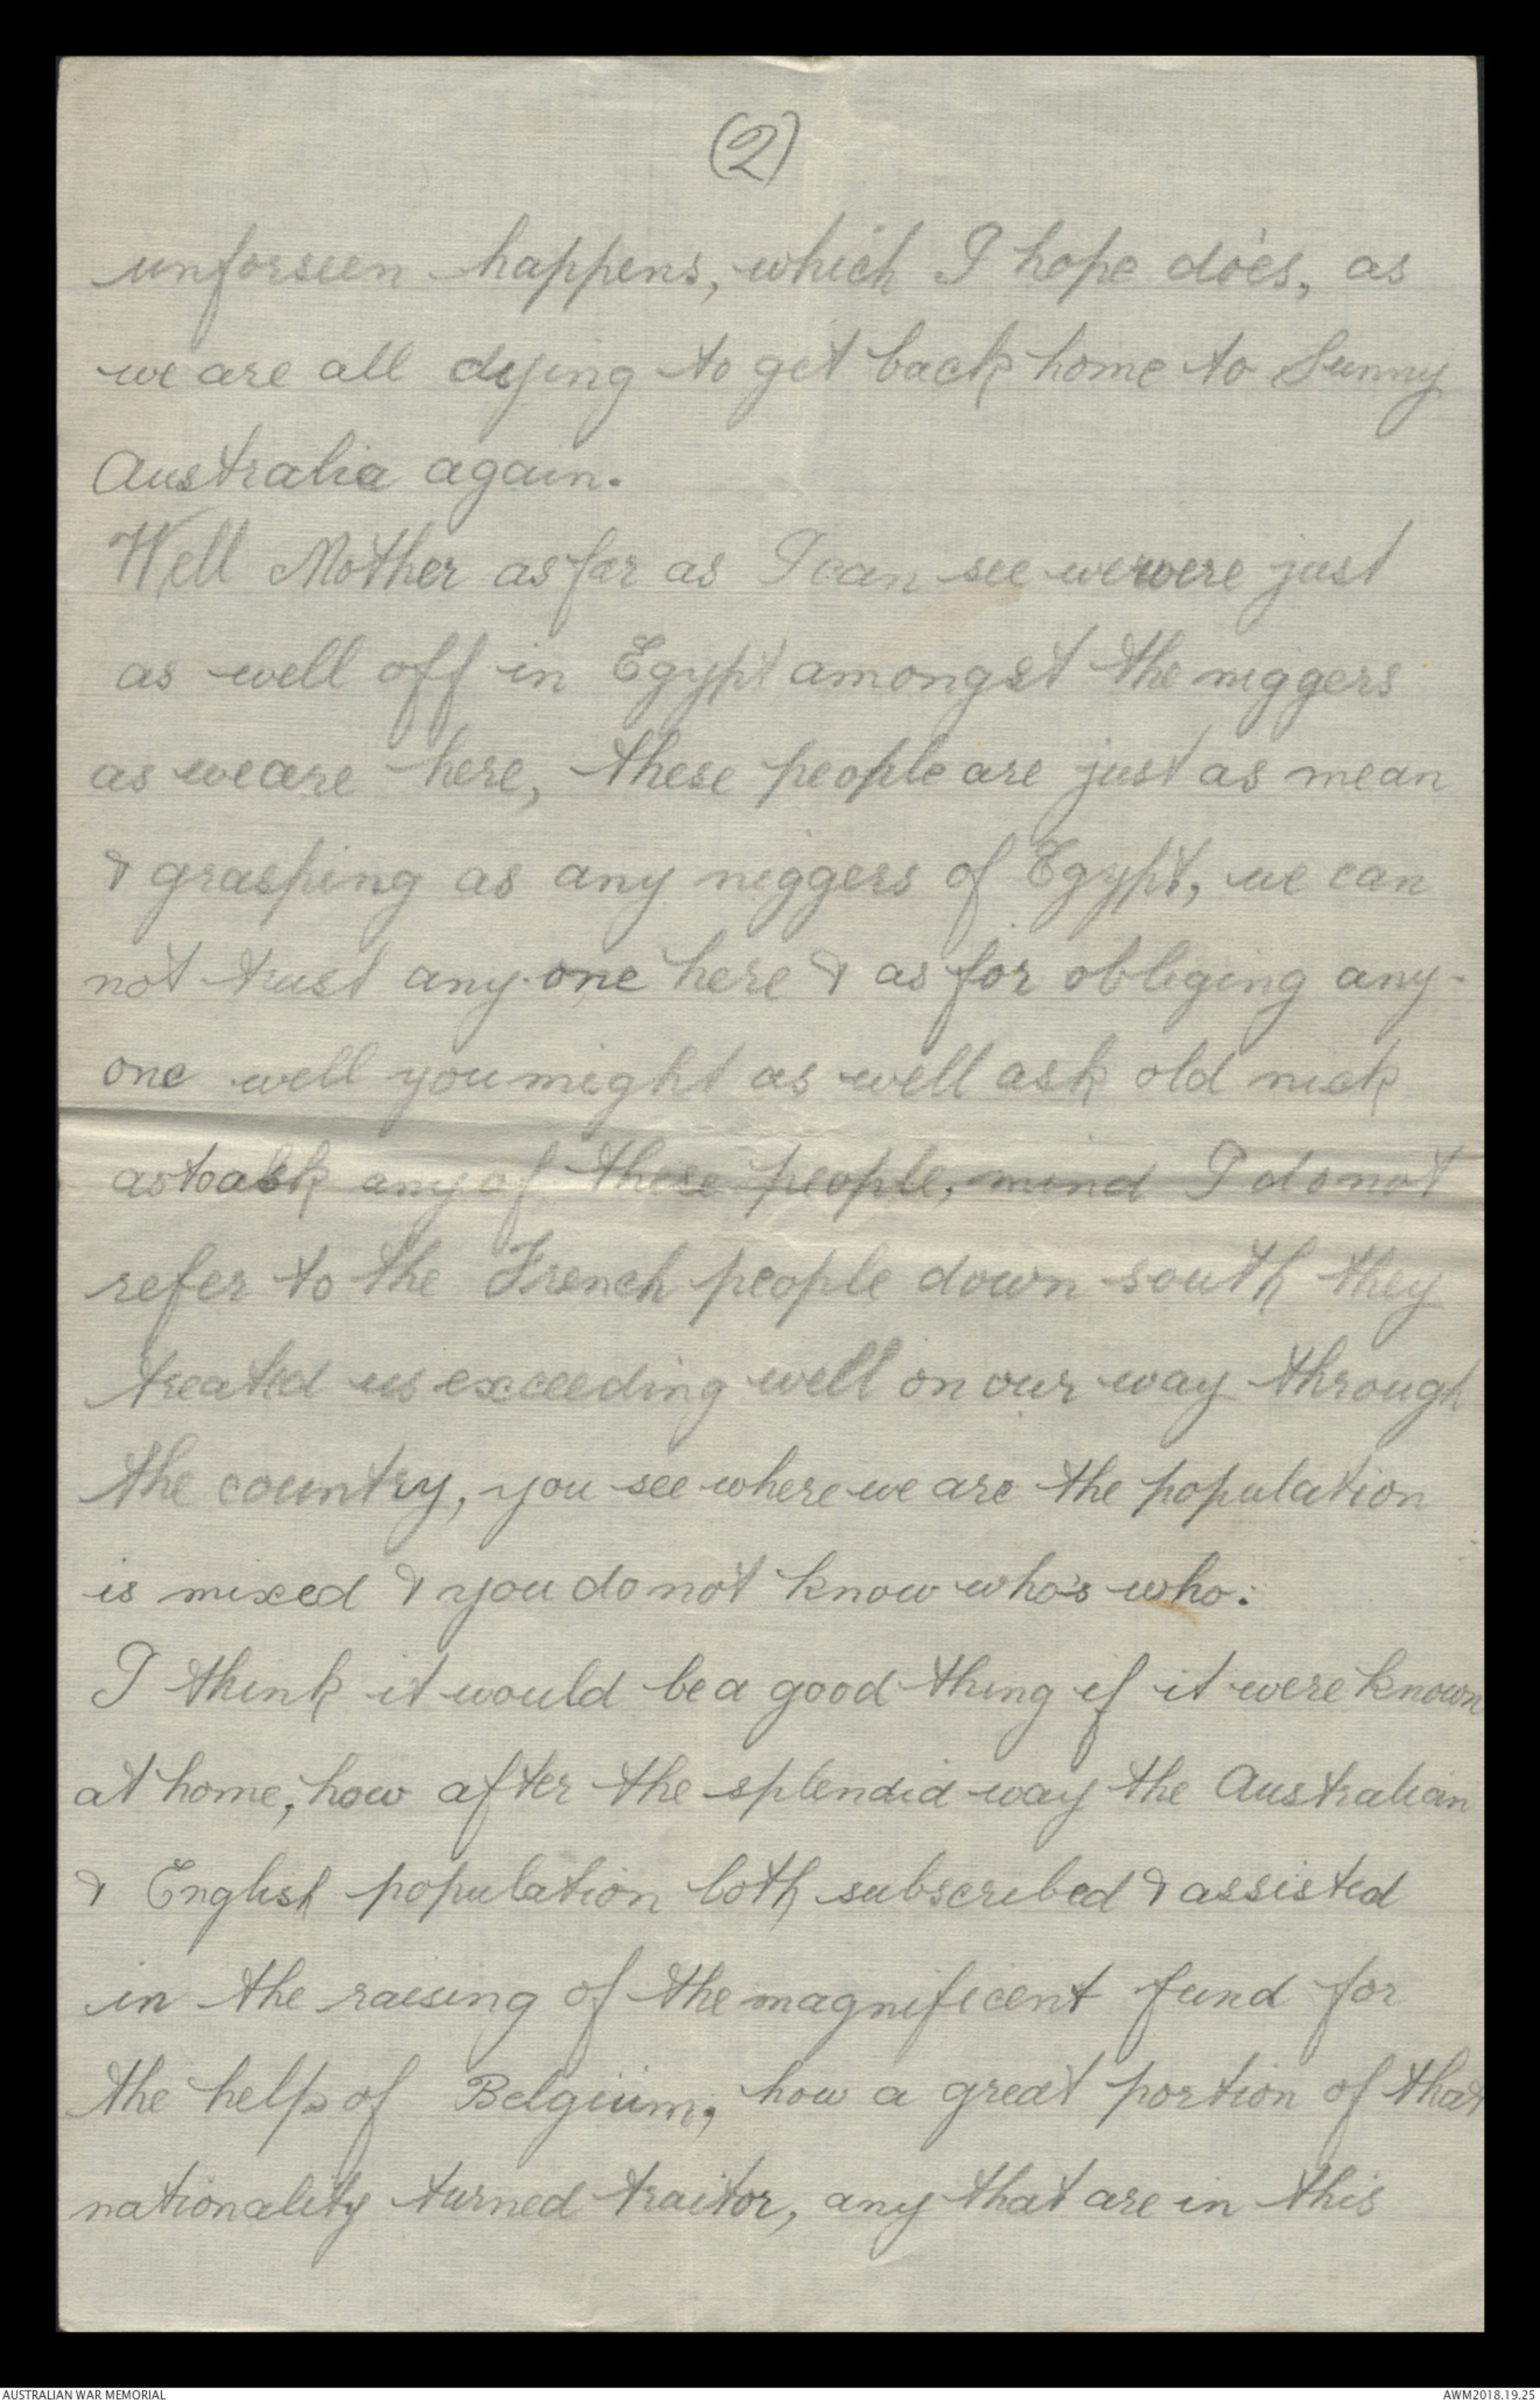 (2)
unforseen happens, which I hope does, as
we are all dying to get back home to Sunny
Australia again.
Well Mother as far as I can see we were just
as well off in Egypt amongst the niggers
as we are here, these people are just as mean
& grasping as any niggers of Egypt, we can
not trust any-one here & as for obliging any-
one well you might as well ask old nick
as to ask any of these people, mind I do not
refer to the French people down south they
treated us exceeding well on our way through
the country, you see where we are the population
is mixed & you do not know who's who.
I think it would be a good thing if it were known
at home, how after the splendid way the Australian
& English population both subscribed & assisted
in the raising of the magnificent fund for
the help of Belgium, how a great portion of that
nationality turned traitor, any that are in this
AUSTRALIAN WAR MEMORIAL
AWM2018.19.25